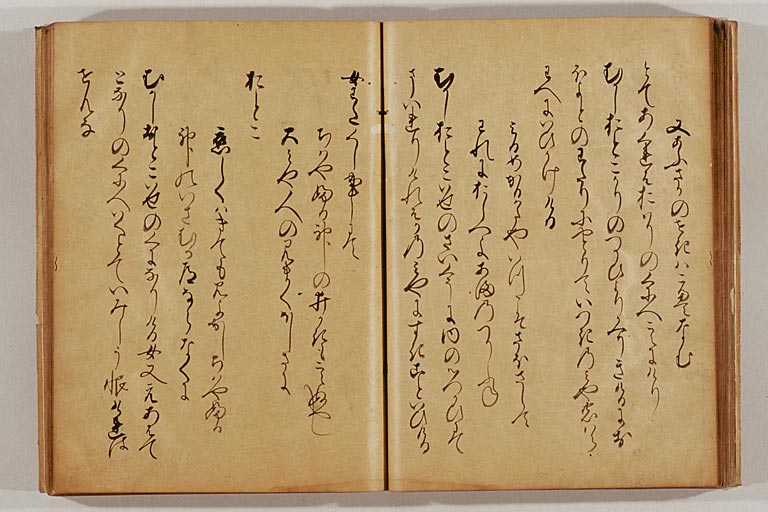 又あふさかのせきハこえなむ
とてあくれはおはりのくにへこえにけり
むかしおとこかりのつかひよりかへりきけるにお
ほよとのわたりにやとりていつきのみやのわら
はへにいひかけゝる
みるめかるかたやいつこそさほさして
われにおしへよあまのつりふね
むかしおとこいせのさいくうに内の御つかひにて
まいれりけれはかのみやにすきこといひける
女わたくし事にて
ちはやふる神のいかきもこえぬへし
大みや人の見まくほしさに
おとこ
恋しくはきても見よかしちはやふる
神のいさむる道ならなくに
むかしおとこいせのくになりける女又えあはて
となりのくにへいくとていみしう恨けれは
をんな